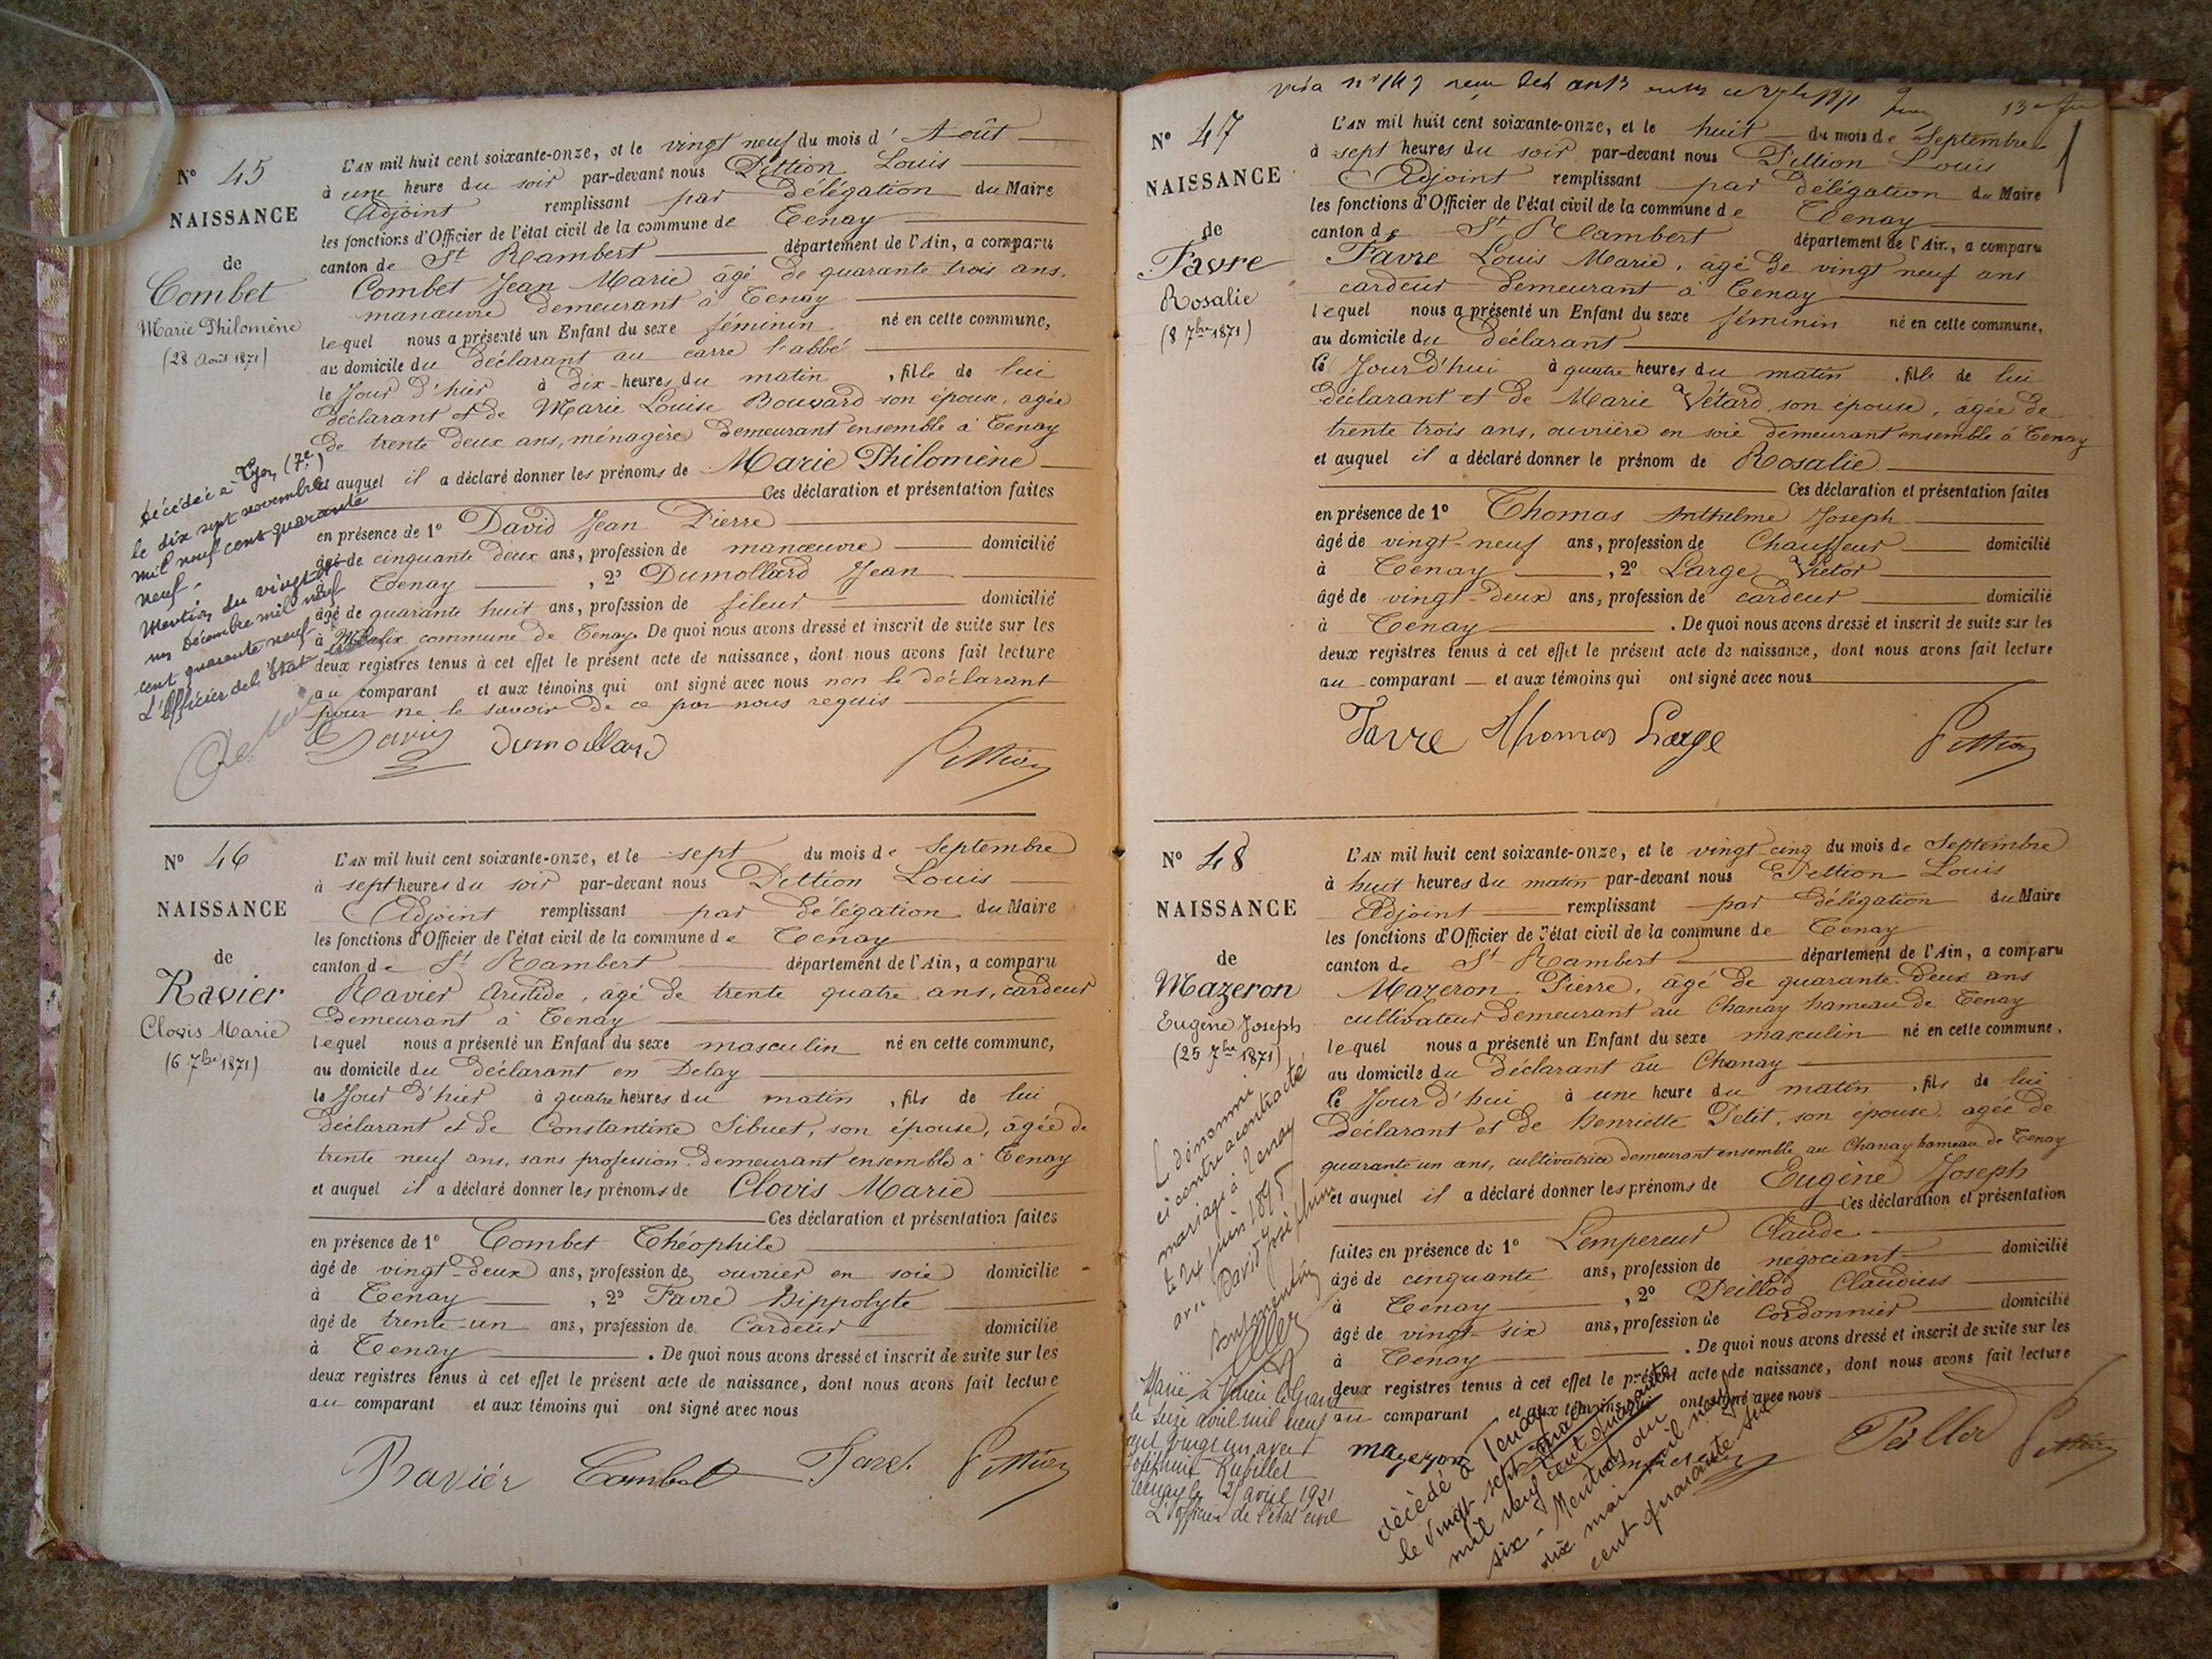 N° 45
NAISSANCE
de
Combet
Marie Philomène
(28 Août 1871)
L'AN mil huit cent soixante-onze, et le vingt neuf du mois d' Août
à une heure du soir par-devant nous Pittion Louis
Adjoint remplissant par délégation du Maire
les fonctions d'Officier de l'état civil de la commune de Tenay
canton de St Rambert département de l'Ain, a comparu
Combet Jean Marie âgé de quarante trois ans,
manœuvre demeurant à Tenay
lequel nous a présenté un Enfant du sexe féminin né en cette commune,
au domicile du déclarant au carre l'abbé
le Jour d'hier à dix heures du matin, fille de lui
déclarant et de Marie Louise Bouvard son épouse, agée
de trente deux ans, ménagère demeurant ensemble à Tenay
et auquel il a déclaré donner les prénoms de Marie Philomène
Ces déclaration et présentation faites
en présence de 1° David Jean Pierre
âgé de cinquante deux ans, profession de manœuvre domicilié
à Tenay, 2° Dumollard Jean
âgé de quarante huit ans, profession de fileur domicilié
à commune de Tenay. De quoi nous avons dressé et inscrit de suite sur les
deux registres tenus à cet effet le présent acte de naissance, dont nous avons fait lecture
au comparant et aux témoins qui ont signé avec nous non le déclarant
pour ne le savoir de ce par nous requis
David Dumollard Pittion
Décédée à Lyon (7e)
le dix sept novembre
mil neuf cent quarante
neuf.
Mention du vingt et
un décembre mil neuf
cent quarante neuf
L'Officier de l'Etat
N° 46
NAISSANCE
de
Ravier
Clovis Marie
(6 7bre 1871)
L'AN mil huit cent soixante-onze, et le sept du mois de Septembre
à sept heures du soir par-devant nous Pittion Louis
Adjoint remplissant par délégation du Maire
les fonctions d'Officier de l'état civil de la commune de Tenay
canton de St Rambert département de l'Ain, a comparu
Ravier Aristide, âgé de trente quatre ans, cardeur
demeurant à Tenay
lequel nous a présenté un Enfant du sexe masculin né en cette commune,
au domicile du déclarant en Delay
le Jour d'hier à quatre heures du matin, fils de lui
déclarant et de Constantine Sibuet, son épouse, âgée de
trente neuf ans, sans profession demeurant ensemble à Tenay
et auquel il a déclaré donner les prénoms de Clovis Marie
Ces déclaration et présentation faites
en présence de 1° Combet Théophile
âgé de vingt-deux ans, profession de ouvrier en soie domicilié
à Tenay, 2° Favre Hippolyte
âgé de trente-un ans, profession de Cardeur domicilié
à Tenay. De quoi nous avons dressé et inscrit de suite sur les
deux registres tenus à cet effet le présent acte de naissance, dont nous avons fait lecture
au comparant et aux témoins qui ont signé avec nous
Ravier Combet Favre Pittion
N° 47
NAISSANCE
de
Favre
Rosalie
(8 7bre 1871)
L'AN mil huit cent soixante-onze, et le huit du mois de Septembre
à sept heures du soir par-devant nous Pittion Louis
Adjoint remplissant par délégation du Maire
les fonctions d'Officier de l'état civil de la commune de Tenay
canton de St Rambert département de l'Ain, a comparu
Favre Louis Marie, âgé de vingt neuf ans
cardeur demeurant à Tenay
lequel nous a présenté un Enfant du sexe féminin né en cette commune,
au domicile du déclarant
le Jour d'hui à quatre heures du matin, fille de lui
déclarant et de Marie Vétard son épouse, âgée de
trente trois ans, ouvrière en soie demeurant ensemble à Tenay
et auquel il a déclaré donner le prénom de Rosalie
Ces déclaration et présentation faites
en présence de 1° Thomas Anthelme Joseph
âgé de vingt-neuf ans, profession de Chauffeur domicilié
à Tenay, 2° Large Victor
âgé de vingt-deux ans, profession de cardeur domicilié
à Tenay. De quoi nous avons dressé et inscrit de suite sur les
deux registres tenus à cet effet le présent acte de naissance, dont nous avons fait lecture
au comparant et aux témoins qui ont signé avec nous
Favre Thomas Large Pittion
N° 48
NAISSANCE
de
Mazeron
Eugène Joseph
(25 7bre 1871)
L'AN mil huit cent soixante-onze, et le vingt-cinq du mois de Septembre
à huit heures du matin par-devant nous Pittion Louis
Adjoint remplissant par délégation du Maire
les fonctions d'Officier de l'état civil de la commune de Tenay
canton de St Rambert département de l'Ain, a comparu
Mazeron Pierre, âgé de quarante-deux ans
cultivateur demeurant au Chanay hameau de Tenay
lequel nous a présenté un Enfant du sexe masculin né en cette commune,
au domicile du déclarant au Chanay
le Jour d'hui à une heure du matin, fils de lui
déclarant et de Henriette Petit, son épouse, agée de
quarante un ans, cultivatrice demeurant ensemble au Chanay hameau de Tenay
et auquel il a déclaré donner les prénoms de Eugène Joseph
Ces déclaration et présentation
faites en présence de 1° Lempereur Claude
âgé de cinquante ans, profession de négociant domicilié
à Tenay, 2° Peillod Claudius
âgé de vingt-six ans, profession de Cordonnier domicilié
à Tenay. De quoi nous avons dressé et inscrit de suite sur les
deux registres tenus à cet effet le présent acte de naissance, dont nous avons fait lecture
au comparant et aux témoins qui ont signé avec nous
Mazeron Peillod Pittion
Le dénommé
ci contre a contracté
mariage à Tenay
le 24 juin 1895
avec David Joséphine
Pour mention
Marié à
le seize avril mil neuf
cent vingt un avec
Joséphine Rubillet
Tenay le 21 avril 1921
L'officier de l'état civil
décédé à Tenay
le vingt sept
mil neuf cent quarante
six - Mention du
dix mai mil neuf
cent quarante six